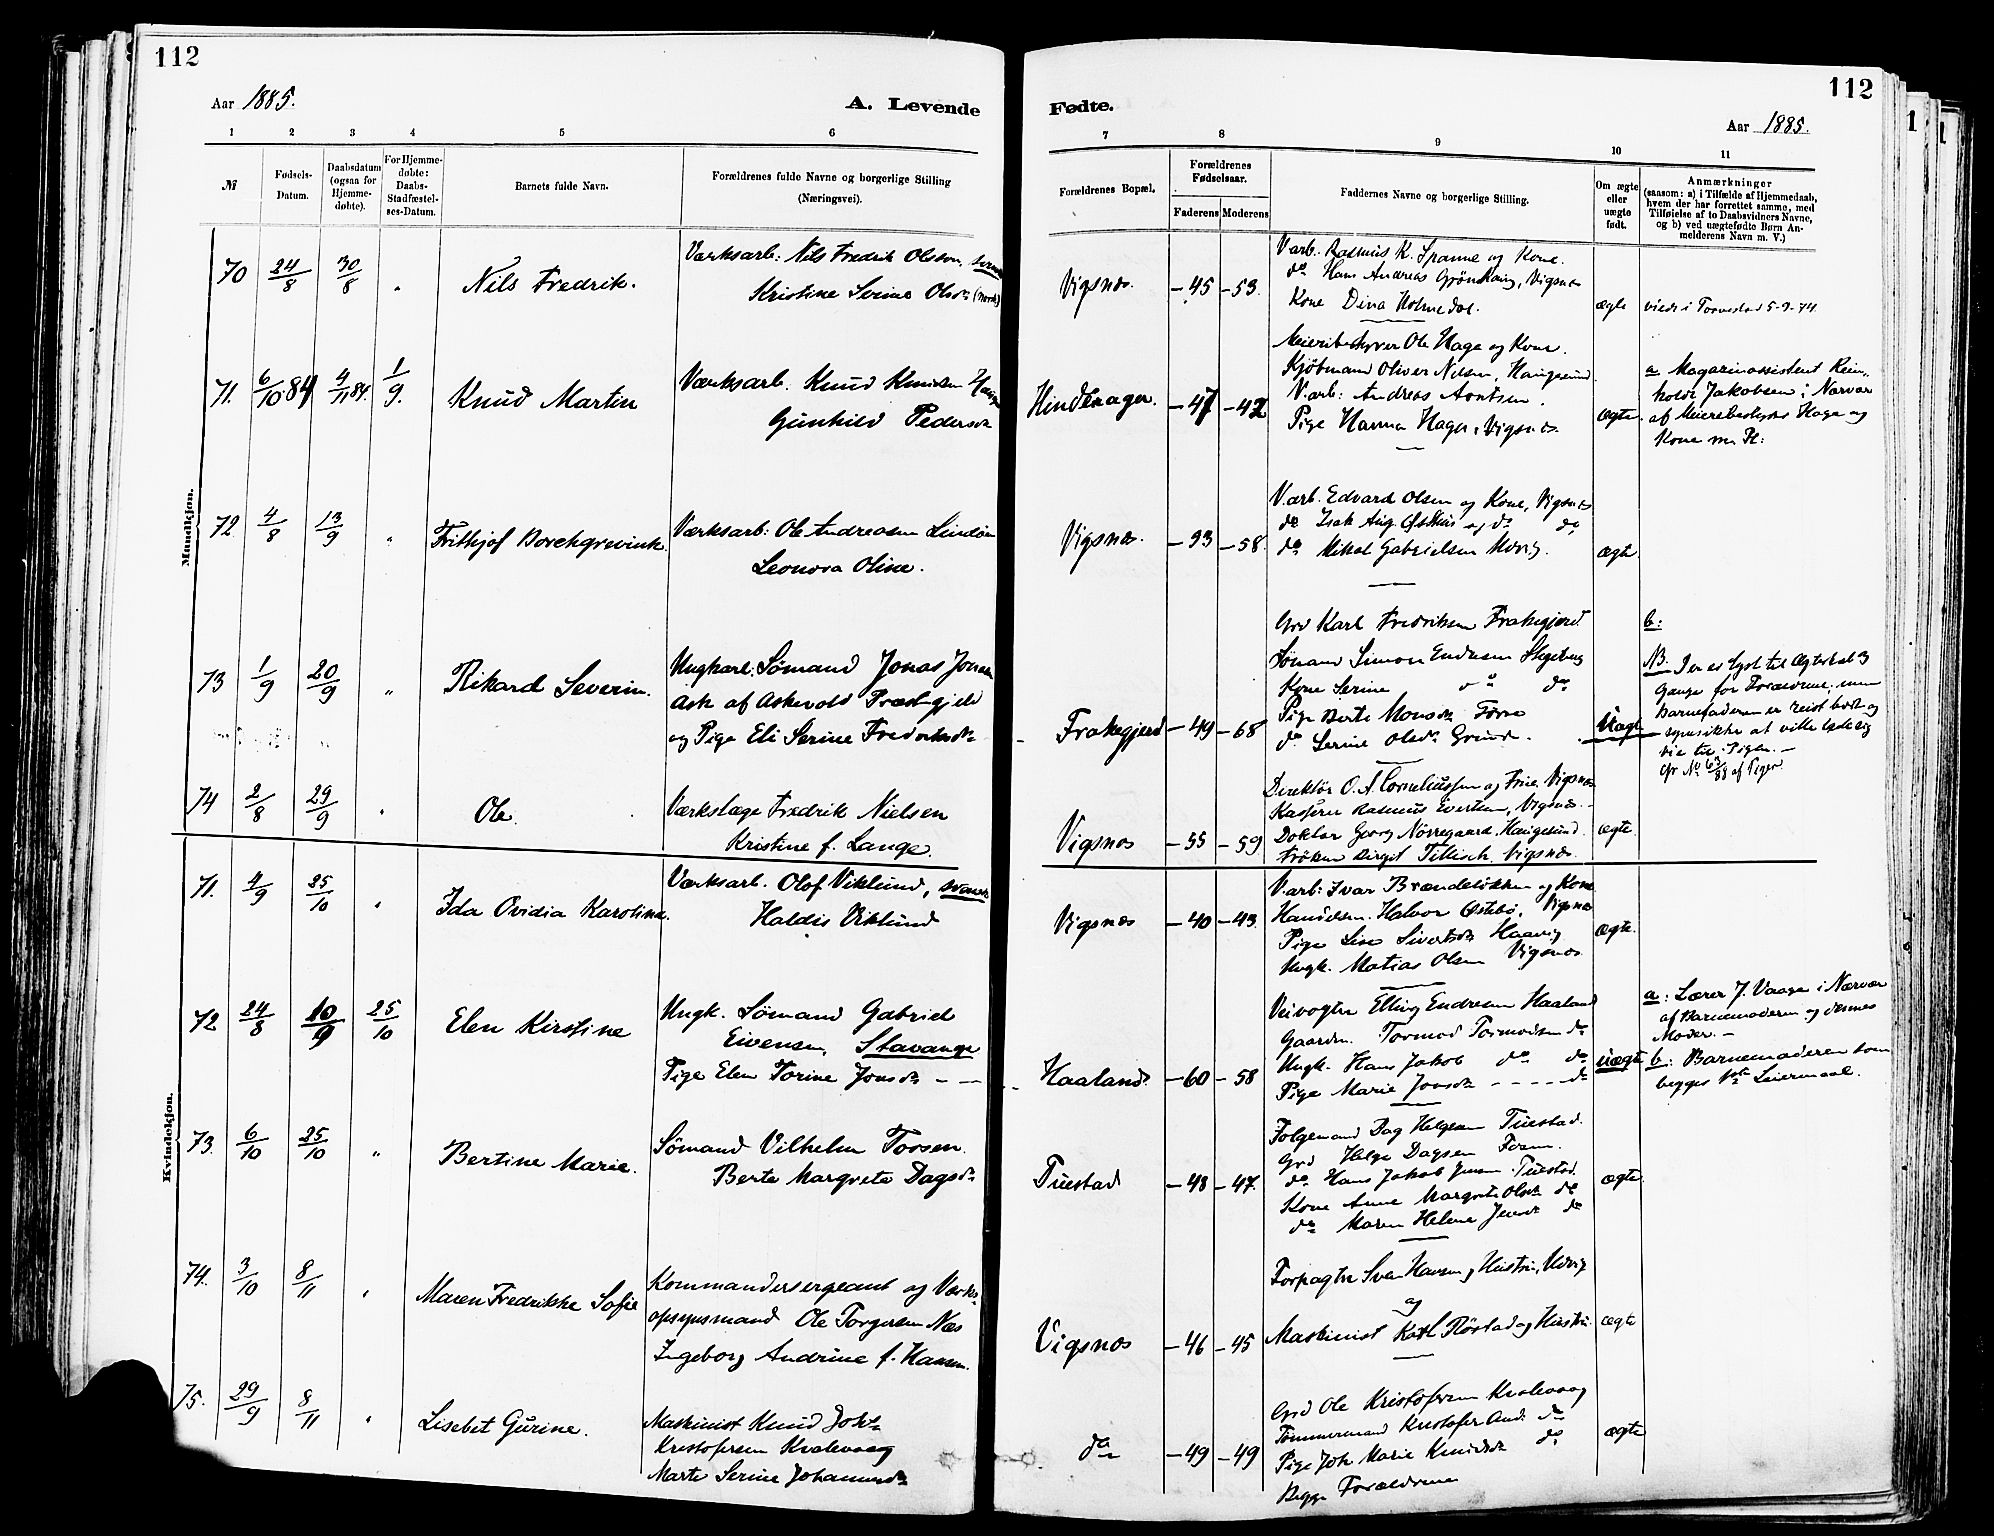 112
Aar 1885.
A. Levende
1 2 3 4 5 6
№
Fødsels-
Datum.
Daabsdatum
(ogsaa for
Hjemme-
døbte).
For Hjemme-
døbte:
Daabs-
Stadfæstel-
ses-Datum.
Barnets fulde Navn.
Forældrenes fulde Navne og borgerlige Stilling
(Næringsvei).
Mandkjøn.
70 24/8 30/8 " Nils Fredrik.
Værksarb: Nils Fredrik Olsson,
Kristine Serine Olsdr (norsk)
71. 6/10 84 4/11 84. 1/9. Knud Martin
Værksarb. Knud Knudsen
Gunhild Pedersdr
72. 4/8 13/9 " Frithjof Borchgrevink
Værksarb: Ole Andreasen
Leonora Oline.
73 1/9 20/9 " Rikard Severin.
Ungkarl. Sømand Jonas
Ask af Askevold Præstegjeld
og Pige Eli Serine Fredriksdr
74 2/8 29/9 " Ole.
Værkslæge Fredrik Nielsen
Kristine f. Lange.
Kvindekjøn.
71. 4/9 25/10 " Ida Ovidia Karoline.
Værksarb. Olof Viklund, svensk
Haldis Viklund
72 24/8 10/9 25/10 Elen Kirstine
Ungk. Sømand Gabriel
Eivensen, Stavanger
Pige Elen Torine Jonsdr - -
73. 6/10 25/10 " Bertine Marie.
Sømand Vilhelm Torsen.
Berte Margrete Dagsdr
74. 3/10 8/11 " Maren Fredrikke Sofie
Kommandersergeant og Værks-
opsynsmand Ole Torgersen Næs
Ingeborg Andrine f. Hansen.
75. 29/9 8/11 " Lisebet Gurine.
Maskinist Knud Joh.
Kristofersen Kvalevaag
Marte Serine Johannesdr
112
Fødte.
Aar 1885.
7 8 9 10 11
Forældrenes Bopæl.
Forældrenes
Fødselsaar.
Faderens Moderens
Faddernes Navne og borgerlige Stilling.
Om ægte
eller
uægte
født.
Anmærkninger
(saasom: a) i Tilfælde af Hjemmedaab,
hvem der har forrettet samme, med
Tilføielse af to Daabsvidners Navne,
og b) ved uægtefødte Børn An-
melderens Navn m. V.)
Vigsnæs. - 45 - 53.
V.arb. Rasmus K. Spanne og Kone.
do Hans Andreas Vigsnæs
Kone Dina Holmedal.
ægte
viede i Torvestad 5-9-74.
- 47 - 42
Meieribestyrer Ole Hage og Kone.
Kjøbmand Oliver Nilsen, Haugesund.
V.arb: Andreas
Pige Hanna Hage, Vigsnæs.
ægte.
a. Magazinassistent Rein-
holdt Jakobsen i Nærvær
af Meieribestyrer Hage og
Kone
Vigsnæs. - 58.
V.arb. Edvard Olsen og Kone, Vigsnæs
do Isak Aug. og do do
do Mikal Gabrielsen
ægte.
Frakegjerd - 49 - 68
Grd Karl Fredriksen Frakegjerd
Sømand Simon Endresen
Kone Serine do do
Pige Berte Monsdr
do Serine Olsdr Grinde.
uægte
b:
NB. Der er lyst til Ægteskab 3
Gange for Forældrene; men
Barnefaderen er reist bort og
synes ikke at ville lade sig
vie til Pigen. -
Cfr No 63/88 af Piger.
Vigsnæs - 55 - 59
Direktør O. A. Corneliussen og Frue, Vigsnæs
Kasserer Rasmus Evertsen, Vigsnæs. -
Doktor Georg Nørregaard, Haugesund.
Frøken Birgit Tillisch. Vigsnæs.
ægte.
Vigsnæs - 40 - 43.
V.arb: Ivar Brændeløkken og Kone
Handelsm. Halvor Østebø, Vigsnæs
Pige Lise Sivertsdr Haavig
Ungk. Matias Olsen Vigsnæs
ægte.
Haaland. - 60 - 58
Veivogter Elling Endresen Haaland
Gaardm. Tormod Tormodsen do
Ungk. Hans Jakob do do
Pige Marie Jonsdr - - - - do
uægte
a: Lærer J. Vaage i Nærvær
af Barnemoderen og dennes
Moder. -
b: Barnemoderen som
begges 1ste Leiermaal.
Tuestad - 48 - 47.
Folgemand Dag Helgesen Tuestad.
Grd Helge Dagsen
do Hans Jakob Tuestad.
Kone Anne Margrete Olsdr do
do Maren Helene do
ægte.
Vigsnæs - 46 - 45
Forpagter Sven Hansen og Hustru,
og
Maskinist Karl og Hustru
ægte
do - 49 - 49
Grd Ole Kristofersen Kvalevaag
Tømmermand Kristofer And. do
Pige Joh. Marie Knudsdr do
Begge Forældrene
ægte